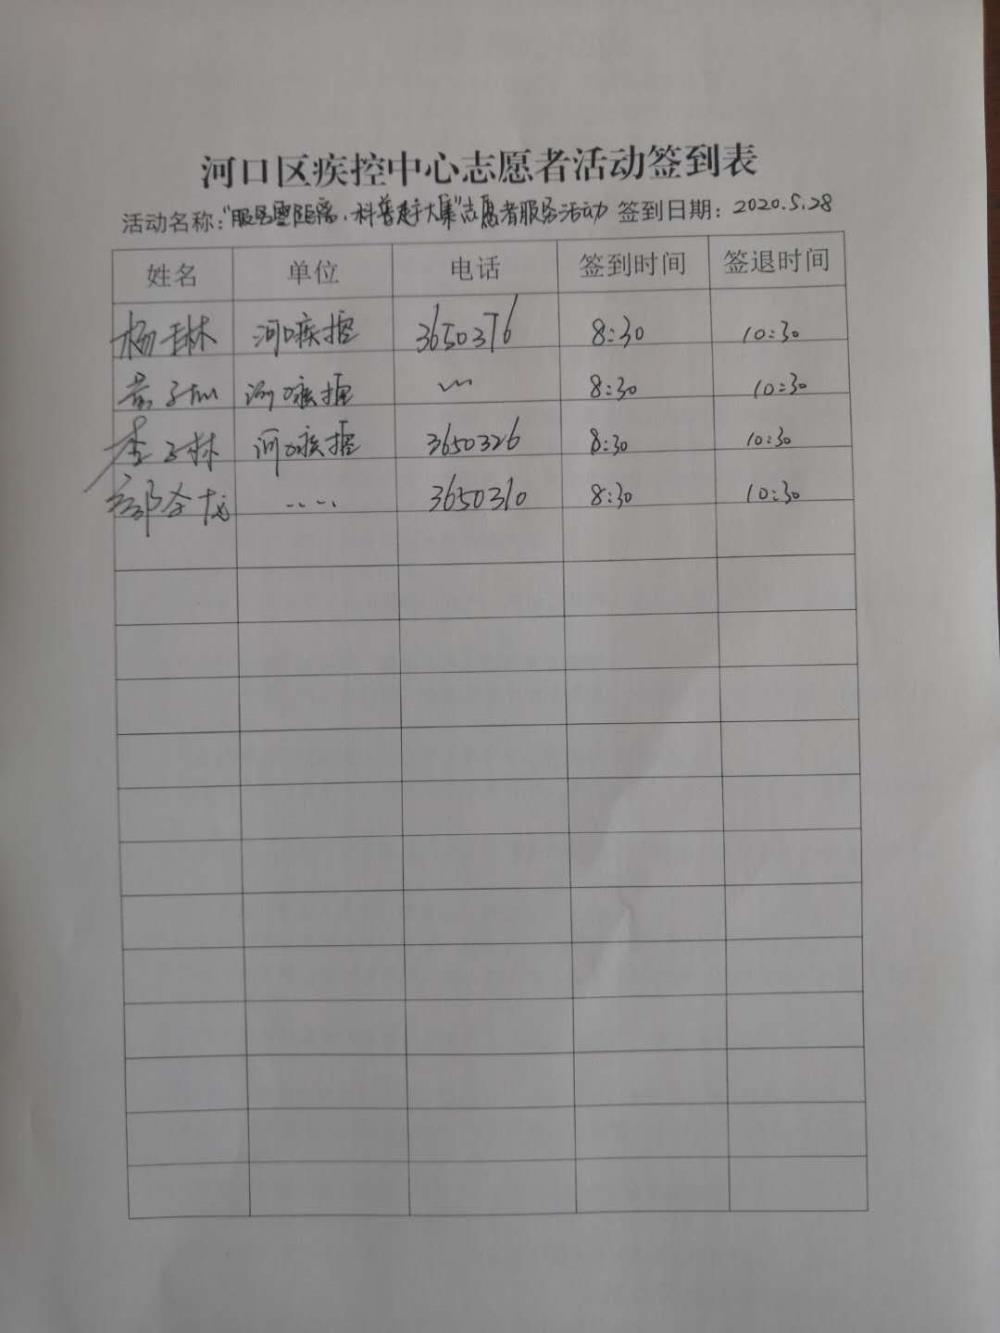 河口区疾控中心志愿者活动签到表
活动名称:“服务零距离,科普赶大集”志愿者服务活动 签到日期: 2020.5.28
姓名 单位 电话 签到时间 签退时间
杨琳 河口疾控 3650376 8:30 10:30
河口疾控 〃 8:30 10:30
李子林 河口疾控 3650326 8:30 10:30
.... 3650310 8:30 10:30